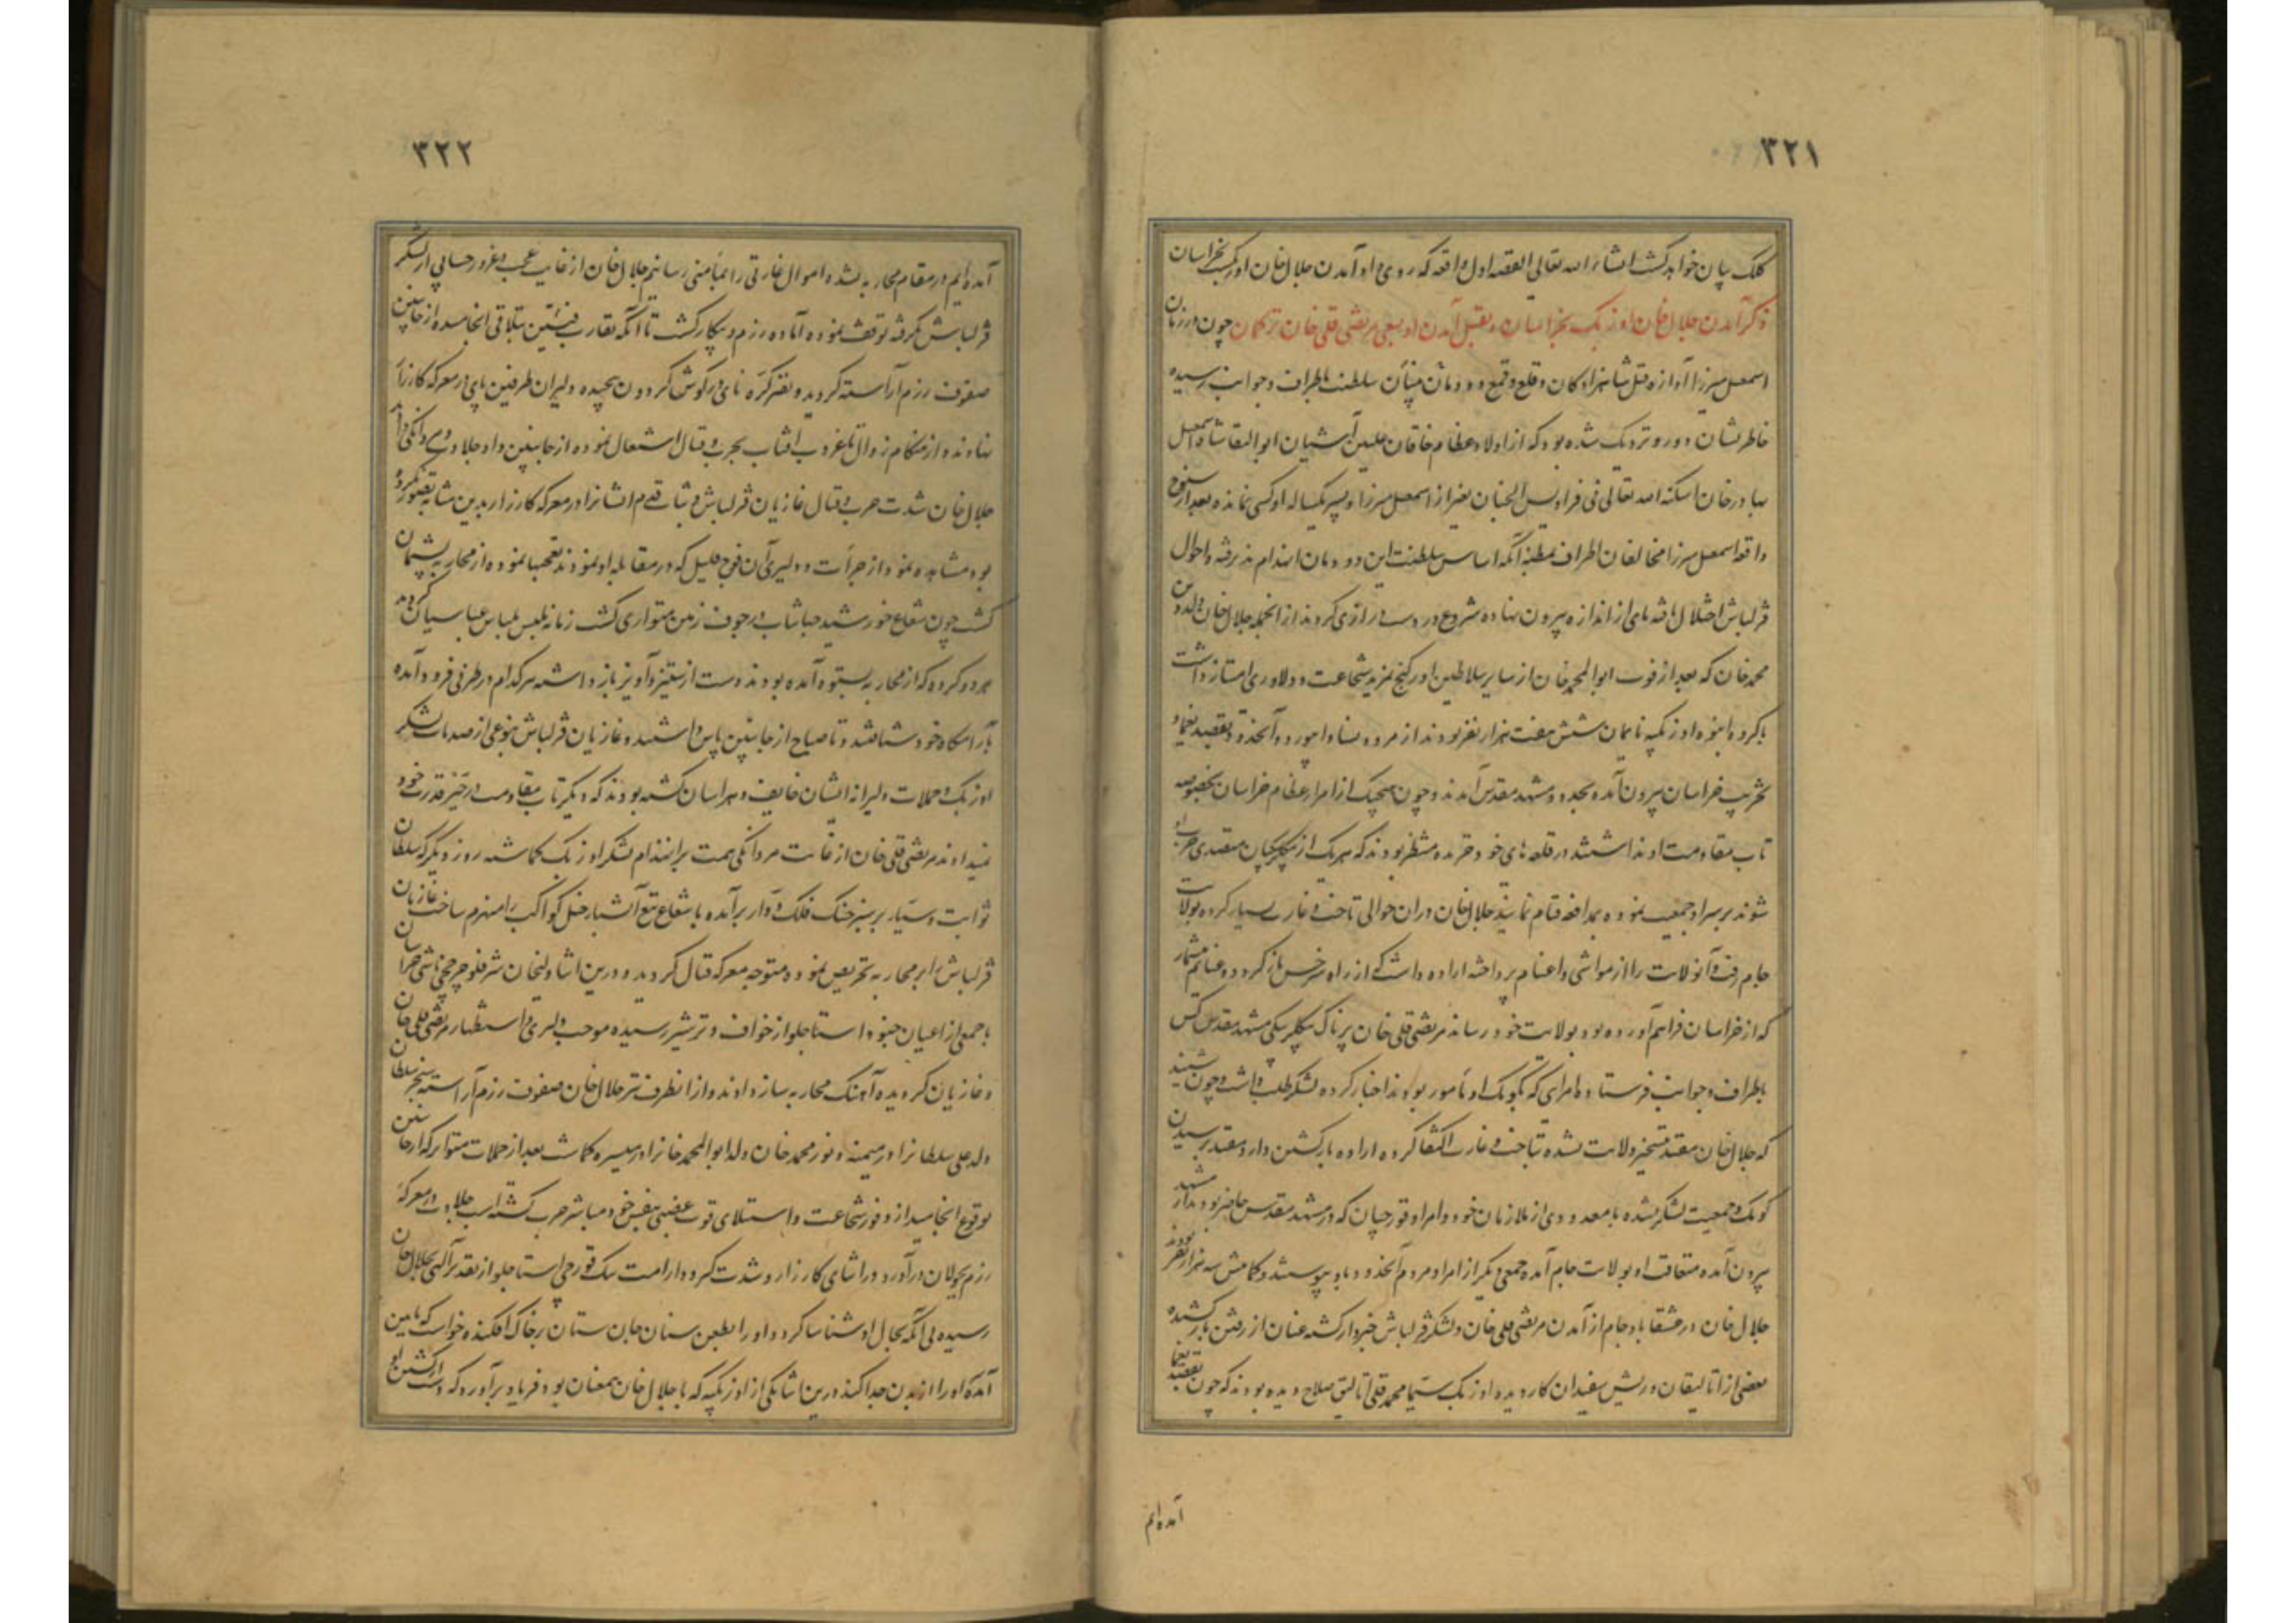 ۳۲۱
کلک بیان خواهد گشت انشاء الله تعالی القصه اول واقعه که روی داد آمدن جلال خان اوزبک بخراسان
ذکر آمدن جلال خان اوزبک بخراسان و بقتل آمدن او بسعی مرتضی قلی خان ترکمان چون در زمان
اسمعیل میرزا آوازه قتل شاهزادکان و قلع و قمع دودمان سلطنت باطراف و جوانب رسیده
خاطرنشان دور و نزدیک شده بود که از اولاد عظام خاقان علیین آشیان ابوالبقا شاه اسمعیل
بهادر خان اسکنه الله تعالی فی فرادیس الجنان بغیر از اسمعیل میرزا و پسر یکساله او کسی نمانده بعد از سنوح
واقعه اسمعیل میرزا مخالفان اطراف بمظنه آنکه اساس سلطنت این دودمان انهدام پذیرفته و احوال
قزلباش اختلال یافته پای از اندازه بیرون نهاده شروع در دست درازی کردند از انجمله جلال خان ولد دین
محمد خان که بعد از فوت ابوالمحمد خان از سایر سلاطین اورکنج بمزید شجاعت و دلاوری امتیاز داشت
با کروه انبوه اوزبکیه تا بمان شش هفت هزار نفر بودند از مرو و نسا و ابیورد و آنحدود بقصد یغما و
تخریب خراسان بیرون آمده بحدود مشهد مقدس آمدند و چون هیچیک از امراء عظام خراسان بخصوصه
تاب مقاومت او نداشتند در قلعه های خود خزیده منتظر بودند که هر یک از بیکلربیکیان متصدی حرب او
شوند بر سر او جمعیت نموده بمدافعه قیام نمایند جلال خان در آن حوالی تاخت و غارت بسیار کرده بولایت
جام رفت و آنولایت را از مواشی و اغنام پرداخته اراده داشت که از راه سرخس باز گردد و غنایم بیشمار
که از خراسان فراهم آورده بود بولایت خود رساند مرتضی قلی خان پرناک بیکلربیکی مشهد مقدس کس
باطراف و جوانب فرستاده امرای که بکومک او مأمور بودند اخبار کرده لشکر طلب داشت و چون شنید
که جلال خان مقید بتسخیر ولایت نشده بتاخت و غارت اکتفا کرده اراده بازگشتن دارد مقید برسیدن
کومک و جمعیت لشکر نشده با معدودی از ملازمان خود و امرا و قورچیان که در مشهد مقدس حاضر بودند از مشهد
بیرون آمده متعاقب او بولایت جام آمده جمعی دیگر از امرا و مردم آنحدود باو پیوستند و کمابیش سه هزار نفر بودند
جلال خان در عشقاباد جام از آمدن مرتضی قلی خان و لشکر قزلباش خبردار گشته عنان از رفتن باز کشیده
بعضی از اتالیقان و ریش سفیدان کار دیده اوزبک سیما محمد قلی اتالیق صلاح دیده بودند که چون بقصد یغما
آمده ایم
۳۲۲
آمده ایم در مقام محاربه نشده اموال غارتی را بمأمنی رسانیم جلال خان از غایت عجب و غرور حسابی از لشکر
قزلباش نگرفته توقف نموده آماده رزم و پیکار گشت تا آنکه تقارب فئتین بتلاقی انجامیده از جانبین
صفوف رزم آراسته گردید و نفیر کره نای در گوش گردون پیچیده دلیران طرفین پای در معرکه کارزار
نهادند و از هنکام زوال تا غروب آفتاب بحرب و قتال اشتعال نموده از جانبین داد جلادت و مردانگی دادند
جلال خان شدت حرب و قتال غازیان قزلباش و ثبات قدم ایشانرا در معرکه کارزار بدین مثابه تصور نکرده
بود مشاهده نمود از جرأت و دلیری آن فوج قلیل که در مقابله او نمودند تعجبها نموده از محاربه پشیمان
گشت چون شعاع خورشید جهانتاب در جوف زمین متواری گشت زمانه ملبس بلباس عباسیان گردید
هر دو گروه که از محاربه بستوه آمده بودند دست از ستیز و آویز باز داشته هر کدام در طرفی فرود آمده
بآرامگاه خود شتافتند و تا صباح از جانبین پاس داشتند و غازیان قزلباش بنوعی از صدمات لشکر
اوزبک و حملات دلیرانه ایشان خایف و هراسان گشته بودند که دیگر تاب مقاومت در حیز قدرت خود
نمیدیدند مرتضی قلی خان از غایت مردانگی همت بر انهزام لشکر اوزبک گماشته روز دیگر که سلطان
ثوابت و سیار بر سبز خنک فلک دوار برآمده با شعاع تیغ آتشبار خیل کواکب را منهزم ساخت غازیان
قزلباش را بر محاربه تحریص نموده متوجه معرکه قتال گردید و درین اثنا ولیخان شرفلو چرخچی باشی خراسان
با جمعی از اعیان جنود استاجلو از خواف و ترشیز رسیده موجب دلیری و استظهار مرتضی قلی خان
و غازیان گردیده آهنگ محاربه ساز دادند و از انطرف نیز جلال خان صفوف رزم آراسته سنجر سلطان
ولد علی سلطانرا در میمنه و نور محمد خان ولد ابوالمحمد خانرا در میسره گماشت بعد از حملات متواتر که از جانبین
بوقوع انجامید از وفور شجاعت و استیلای قوت غضبی بنفس خود مباشر حرب گشته اسب جلادت در معرکه
رزم بجولان درآورد در اثنای کارزار و شدت گیر و دار امت بیک قورچی استاجلو از تقدیر الهی بجلال خان
رسیده بی آنکه بحال او شناسا گردد او را بطعن سنان جان ستان بر خاک افکنده خواست که پایین
آمده او را از بدن جدا کند درین اثنا یکی از اوزبکیه که با جلال خان همعنان بود فریاد برآورد که دست از کشتن او